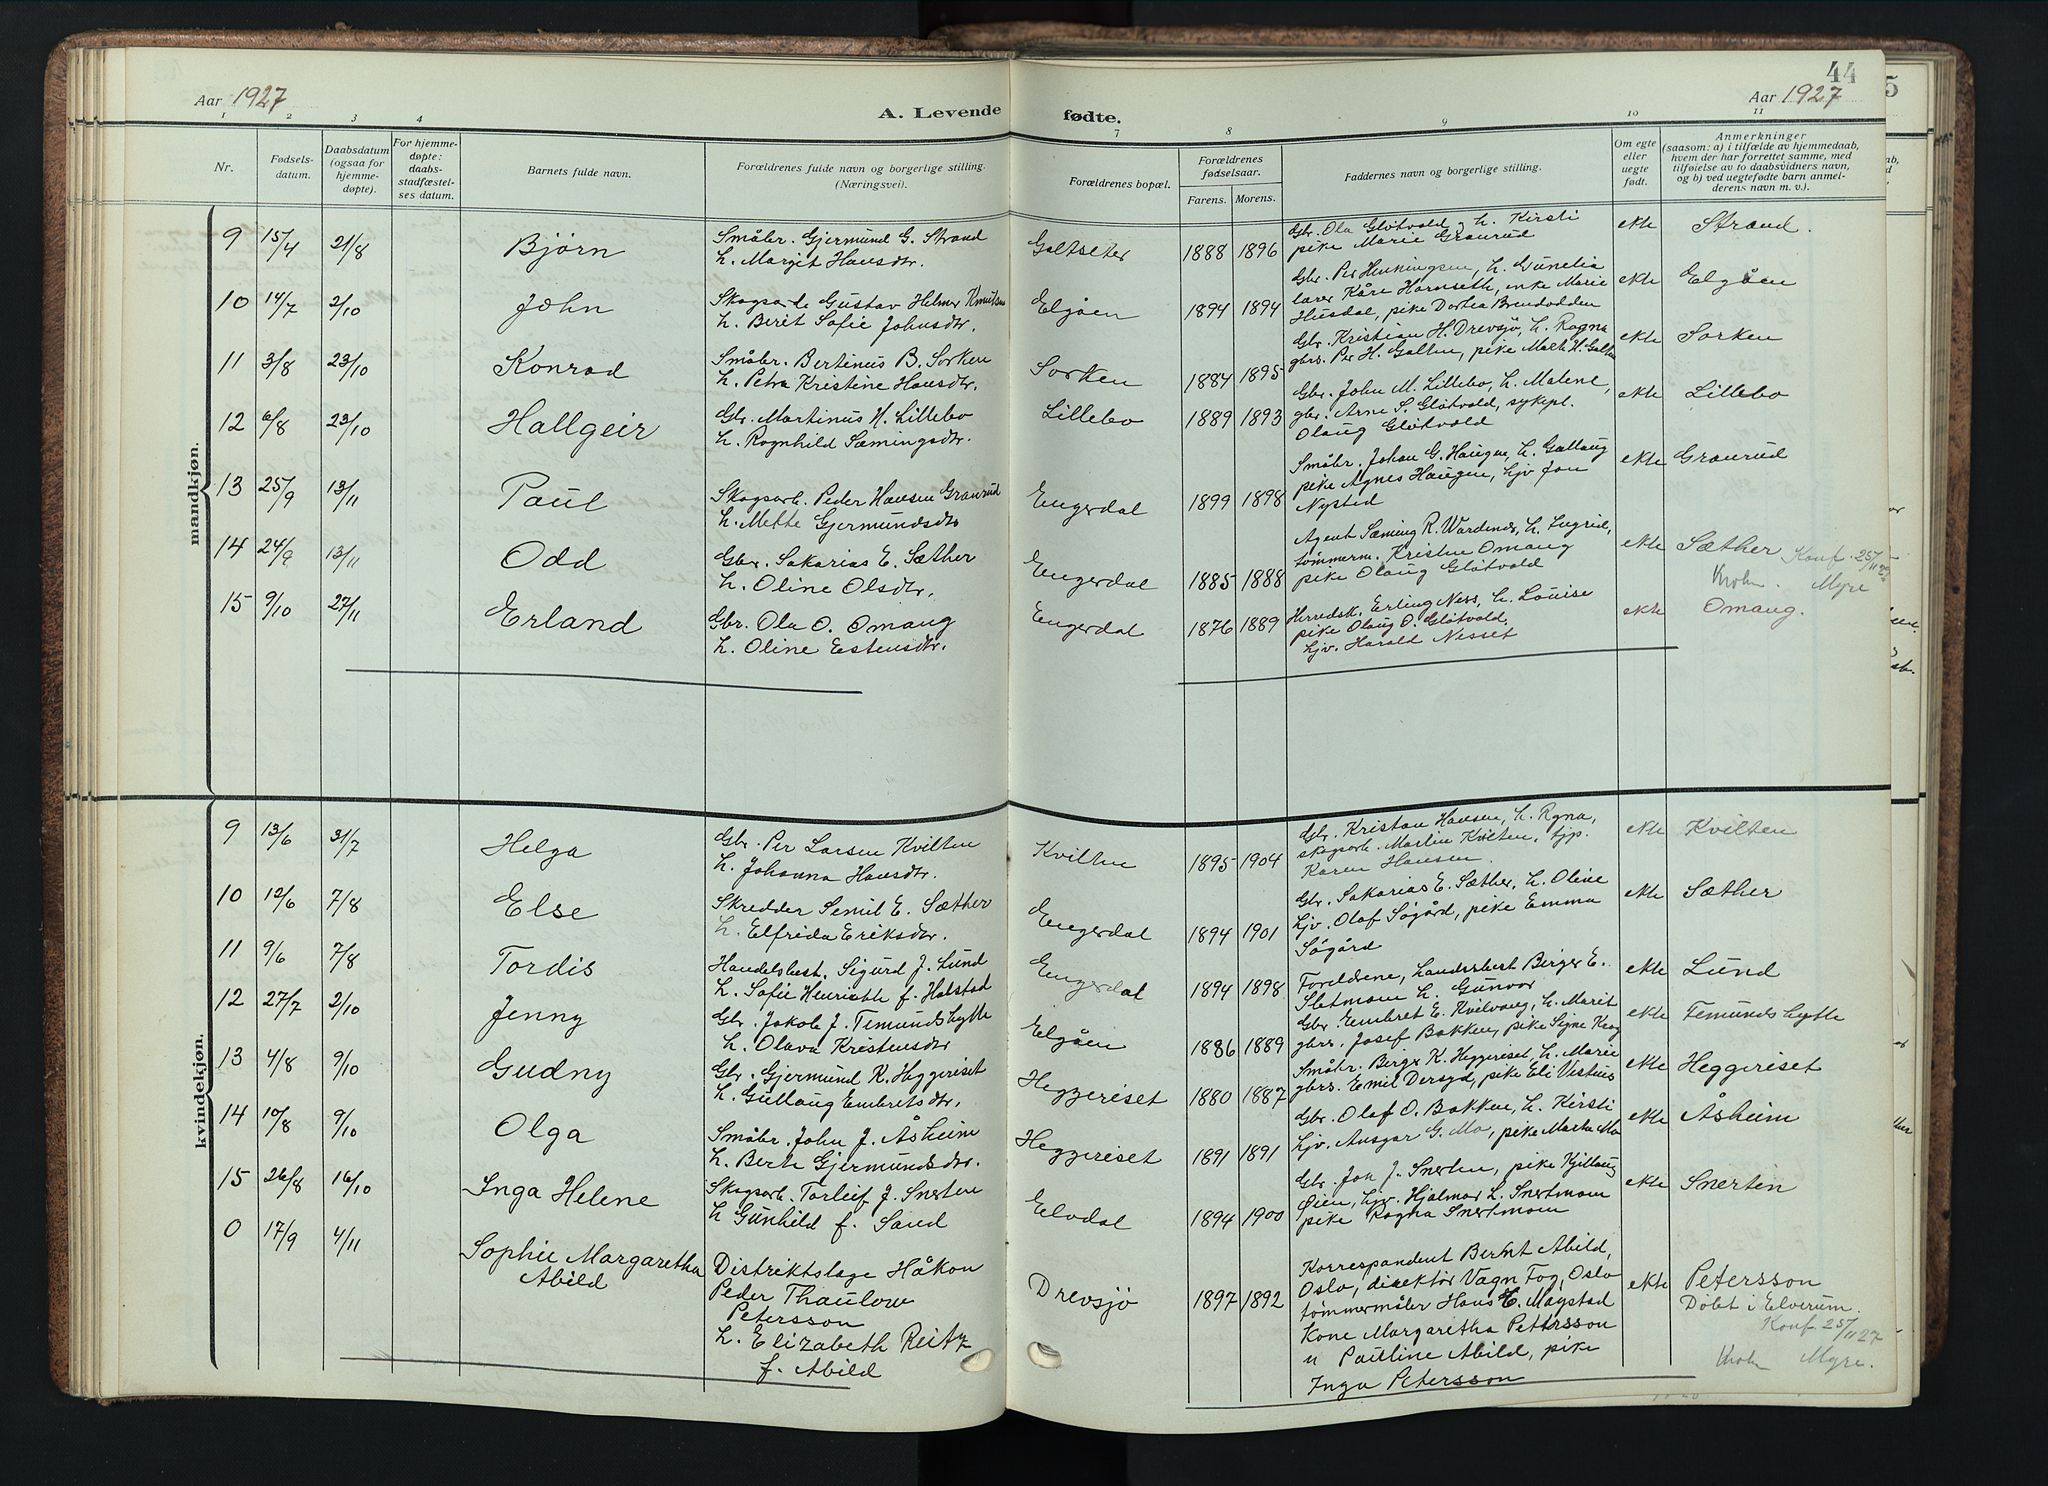 44
Aar 1927
A. Levende fødte.
Aar 1927
1 2 3 4 7 8 9 10 11
Nr.
Fødsels-
datum.
Daabsdatum
(ogsaa for
hjemme-
døpte).
For hjemme-
døpte:
daabs-
stadfæstel-
ses datum.
Barnets fulde navn.
Forældrenes fulde navn og borgerlige stilling.
(Næringsvei).
Forældrenes bopæl.
Forældrenes
fødselsaar.
Farens. Morens.
Faddernes navn og borgerlige stilling.
Om egte
eller
uegte
født.
Anmerkninger
(saasom: a) i tilfælde av hjemmedaab,
hvem der har forrettet samme, med
tilføielse av to daabsvidners navn,
og b) ved uegtefødte barn anmel-
derens navn m. v.).
mandkjøn.
9 15/4 21/8 Bjørn
Småbr. Gjermund G. Strand
h. Margit Hansdtr.
Galtseter 1888 1896
Gbr. Ola Gløtvold, h. Kirsti
pike Marie Granrud
ekte Strand.
10 14/7 2/10 John
Skogsarb. Gustav Helmer Knutsen
h. Berit Sofie Johnsdtr.
Elgåen 1894 1894
Gbr. Per Henningsen, h. Gunelia
lærer Kåre Hornseth, enke Marie
Husdal, pike Dorthea Brendodden
ekte Elgåen
11 3/8 23/10 Konrad
Småbr. Bertinus B. Sorken
h. Petra Kristine Hansdtr.
Sorken 1884 1895
Gbr. Kristian H. Drevsjø, h. Ragna
gbrs. Per H. Galten, pike Marth H. Galten
ekte Sorken
12 6/8 23/10 Hallgeir
Gbr. Martinus H. Lillebo
h. Ragnhild Sæmingsdtr.
Lillebo 1889 1893
Gbr. John M. Lillebo, h. Malene,
gbr. Arne S. Gløtvold, sykepl.
Olaug Gløtvold
ekte Lillebo
13 25/9 13/11 Paul
Skogsarb. Peder Hansen Granrud
h. Mette Gjermundsdtr
Engerdal 1899 1898
Småbr. Johan G. Haugen, h. Gullaug
pike Agnes Haugen, hjv Jon
Nysted
ekte Granrud
14 24/9 13/11 Odd
Gbr. Sakarias E. Sæther
h. Oline Olsdtr.
Engerdal 1885 1888
Agent Sæming R. Wardenær, h. Ingrid,
tømmerm. Kristen Omang
pike Olaug Gløtvold
ekte Sæther Konf. 25/11 27
Krohn. Myre
15 9/10 27/11 Erland
Gbr. Ola O. Omang
h. Oline Estensdtr.
Engerdal 1876 1889
Herredsk. Erling Ness, h. Louise
pike Olaug O. Gløtvold,
hjv. Harald Nesset
ekte Omang.
kvindekjøn.
9 13/6 31/7 Helga
Gbr. Per Larsen Kvilten
h. Johanna Hansdtr.
Kvilten 1895 1904
Gbr. Kristian Hansen, h. Ragna,
skogsarb. Martin Kvilten, tjp.
Karen Hansen.
ekte Kvilten
10 12/6 7/8 Else
Skredder Semil E. Sæther
h. Elfrida Eriksdtr.
Engerdal 1894 1901
Gbr. Sakarias E. Sæther, h. Oline
hjv. Olaf Søgård, pike Emma
Søgård
ekte Sæther
11 9/6 7/8 Tordis
Handelsbest. Sigurd J. Lund
h. Sofie Henriette f. Halstad
Engerdal 1894 1898
Foreldrene, Landersbest Birger E.
Sletmoen h. Gunvor
ekte Lund
12 27/7 2/10 Jenny
Gbr. Jakob J. Femundshytte
h. Olava Kristensdtr
Elgåen 1886 1889
Gbr. Embret E. Kvilvang, h. Marit
gbrs. Josef Bakken, pike Signe Krog
ekte Femundshytte
13 4/8 9/10 Gudny
Gbr. Gjermund K. Heggeriset
h. Gullaug Embretsdtr.
Heggeriset 1880 1887
Småbr. Birger K. Heggeriset, h. Marie
gbrs. Emil Dersyd, pike Eli Vestnes
ekte Heggeriset
14 10/8 9/10 Olga
Småbr. John J. Åsheim
h. Berte Gjermundsdtr.
Heggeriset 1891 1891
Gbr. Olaf O. Bakken, h. Kirsti
hjv. Ansgar G. Mo, pike Marthe Mo
ekte Åsheim
15 26/8 16/10 Inga Helene
Skogsarb. Torleif J. Snerten
h Gunhild f. Sand
Elvdal 1894 1900
Gbr. Jon J. Snerten, pike Kjellaug
Øien, hjv. Hjalmar L. Snertmoen
pike Ragna Snertmoen
ekte Snerten
0 17/9 4/11 Sophie Margaretha
Abild
Distriktslæge Håkon
Peder Thaulow
Petersson
h. Elizabeth Reitz
f. Abild
Drevsjø 1897 1892
Korrespondent Bernt Abild,
Oslo, direktør Vagn Fog, Oslo
tømmermåler Hans E. Møystad
Kone Margaretha Pettersson
u Pauline Abild, pike
Inga Petersson
ekte Petersson
Døbt i Elverum.
Konf. 25/11 27
Krohn Myre.